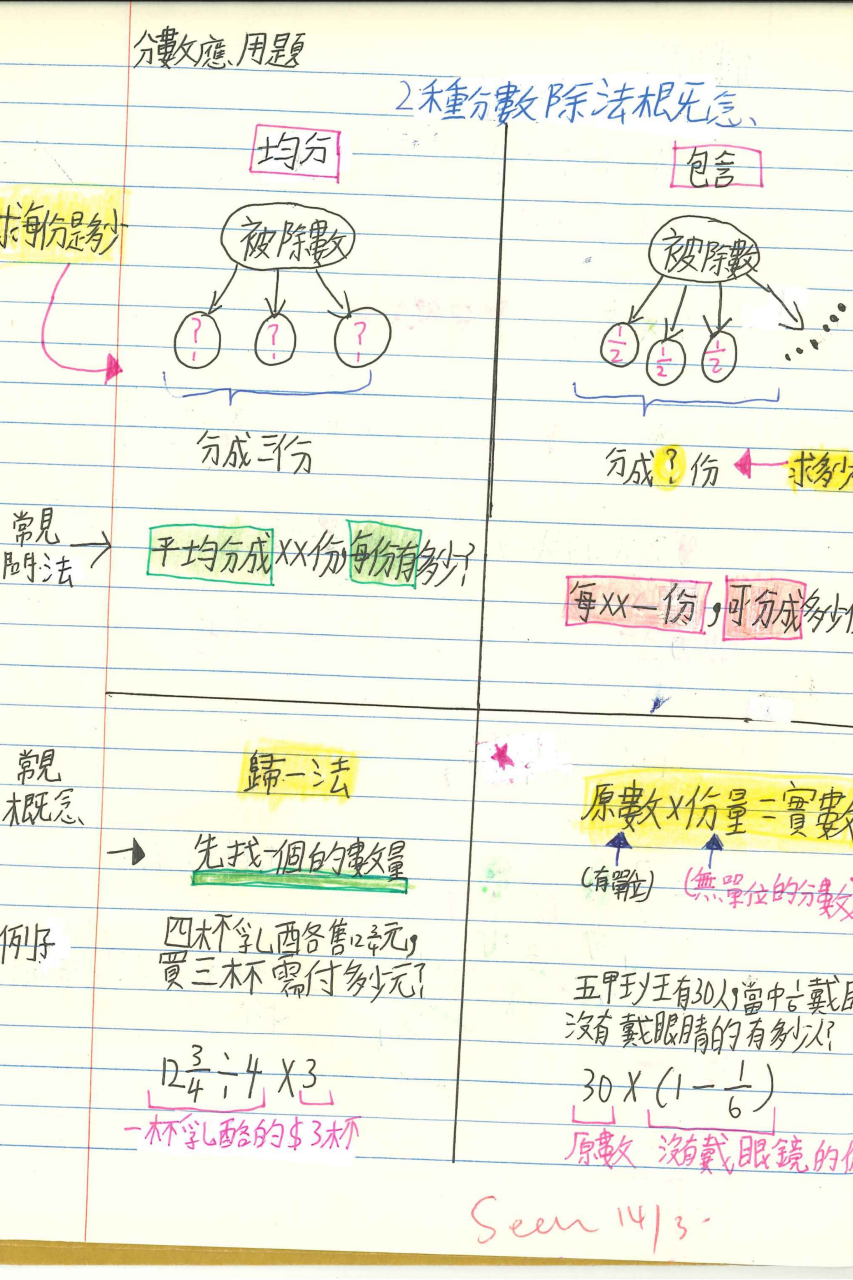 分數應用題
2種分數除法概念
均分
包含
求每份是多少
被除數
被除數
? ? ?
1/2 1/2 1/2 ......
分成三份
分成?份
求多少
常見
問法
平均分成XX份,每份有多少?
每XX一份,可分成多少
常見
概念
歸一法
原數X份量=實數
先找一個的數量
(有單位)
(無單位的分數
例子
四杯乳酪各售12 3/4元,
買三杯需付多少元?
五甲班有30人,當中1/6戴
沒有戴眼睛的有多少人?
12 3/4 ÷ 4 X 3
30 X (1 - 1/6)
一杯乳酪的$ 3杯
原數 沒有戴眼鏡的
Seen 14/3